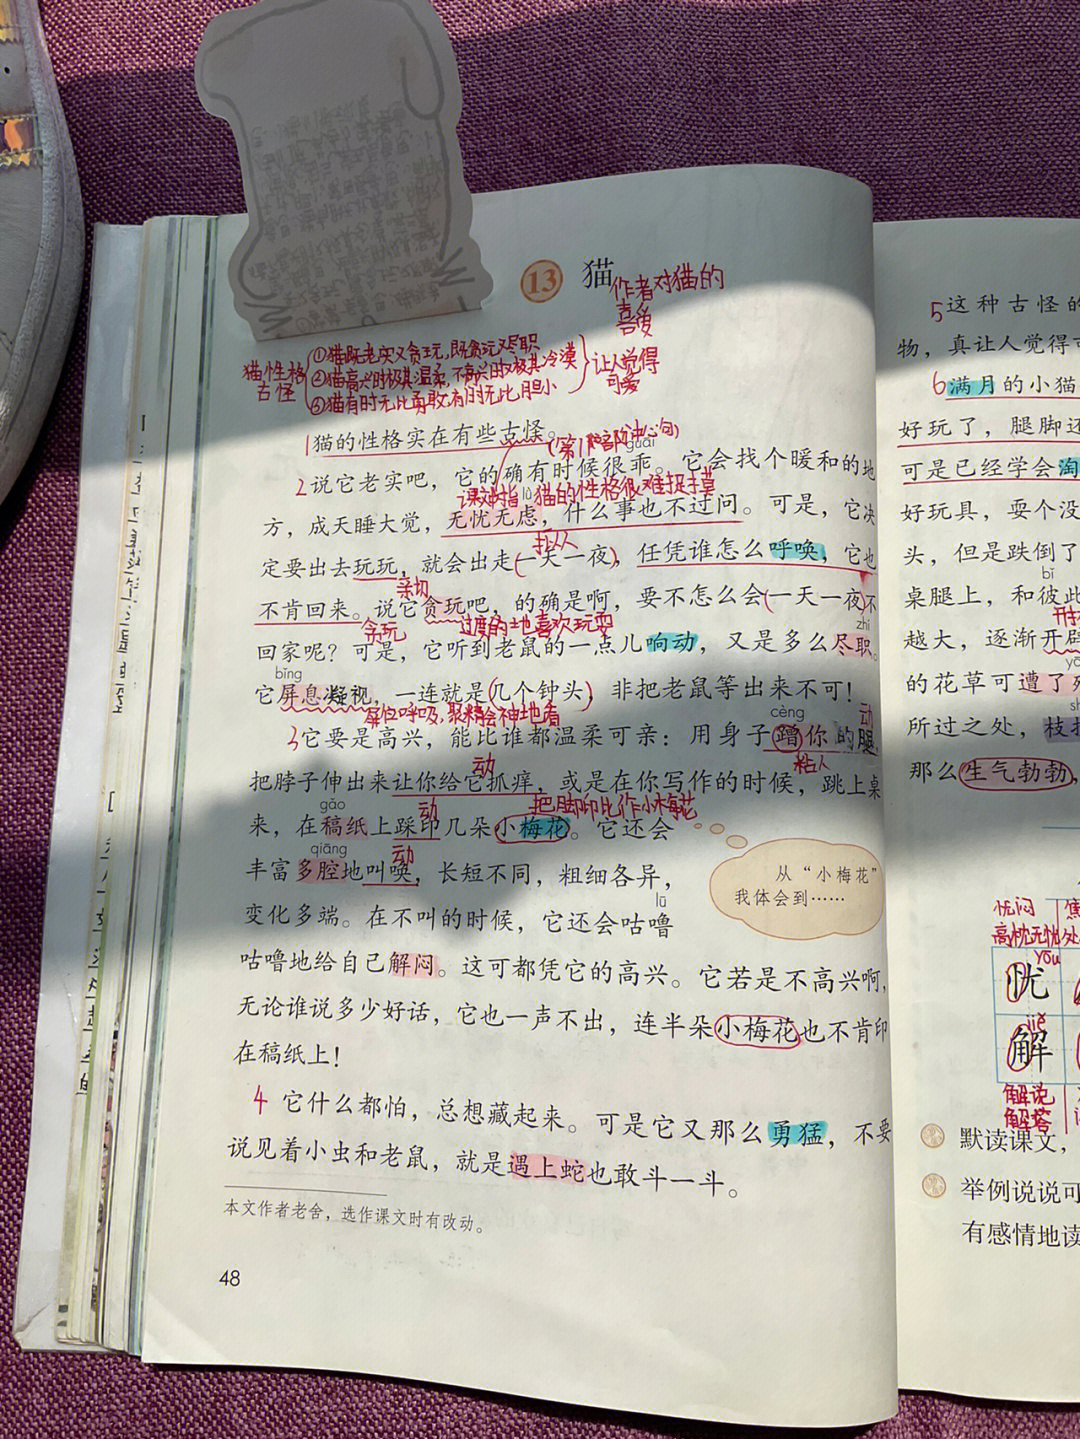 13 猫
作者对猫的
喜爱
猫性格
古怪
①猫既老实又贪玩,既贪玩又尽职
②猫高兴时极其温柔,不高兴时又极其冷漠
③猫有时无比勇敢,有时无比胆小
让人觉得
可爱
1猫的性格实在有些古怪。
(第1部分中心句)
guāi
2说它老实吧，它的确有时候很乖。它会找个暖和的地
课文中指 猫的性格很难捉摸
lǜ
方，成天睡大觉，无忧无虑，什么事也不过问。可是，它决
拟人
定要出去玩玩，就会出走(一天一夜)，任凭谁怎么呼唤，它也
亲切
不肯回来。说它贪玩吧，的确是啊，要不怎么会(一天一夜)不
贪玩 过度的地喜欢玩耍
zhí
回家呢？可是，它听到老鼠的一点儿响动，又是多么尽职。
bǐng
它屏息凝视，一连就是(几个钟头)，非把老鼠等出来不可！
屏住呼吸,聚精会神地看
cèng
动
3它要是高兴，能比谁都温柔可亲：用身子蹭你的腿，
动
粘人
把脖子伸出来让你给它抓痒，或是在你写作的时候，跳上桌
gǎo
动
把脚印比作小梅花
来，在稿纸上踩印几朵小梅花。它还会
qiāng
动
丰富多腔地叫唤，长短不同，粗细各异，
变化多端。在不叫的时候，它还会咕噜
lū
咕噜地给自己解闷。这可都凭它的高兴。它若是不高兴啊，
无论谁说多少好话，它也一声不出，连半朵小梅花也不肯印
在稿纸上！
从“小梅花”
我体会到……
4 它什么都怕，总想藏起来。可是它又那么勇猛，不要
说见着小虫和老鼠，就是遇上蛇也敢斗一斗。
本文作者老舍，选作课文时有改动。
48
5这种古怪的
物，真让人觉得可
6满月的小猫
好玩了，腿脚还
可是已经学会淘
好玩具，耍个没
头，但是跌倒了
bǐ
桌腿上，和彼此
越大，逐渐开辟
的花草可遭了殃
所过之处，枝折
那么生气勃勃，
忧闷
高枕无忧
yōu
忧
jiě
解
解说
解答
默读课文，
举例说说可
有感情地读